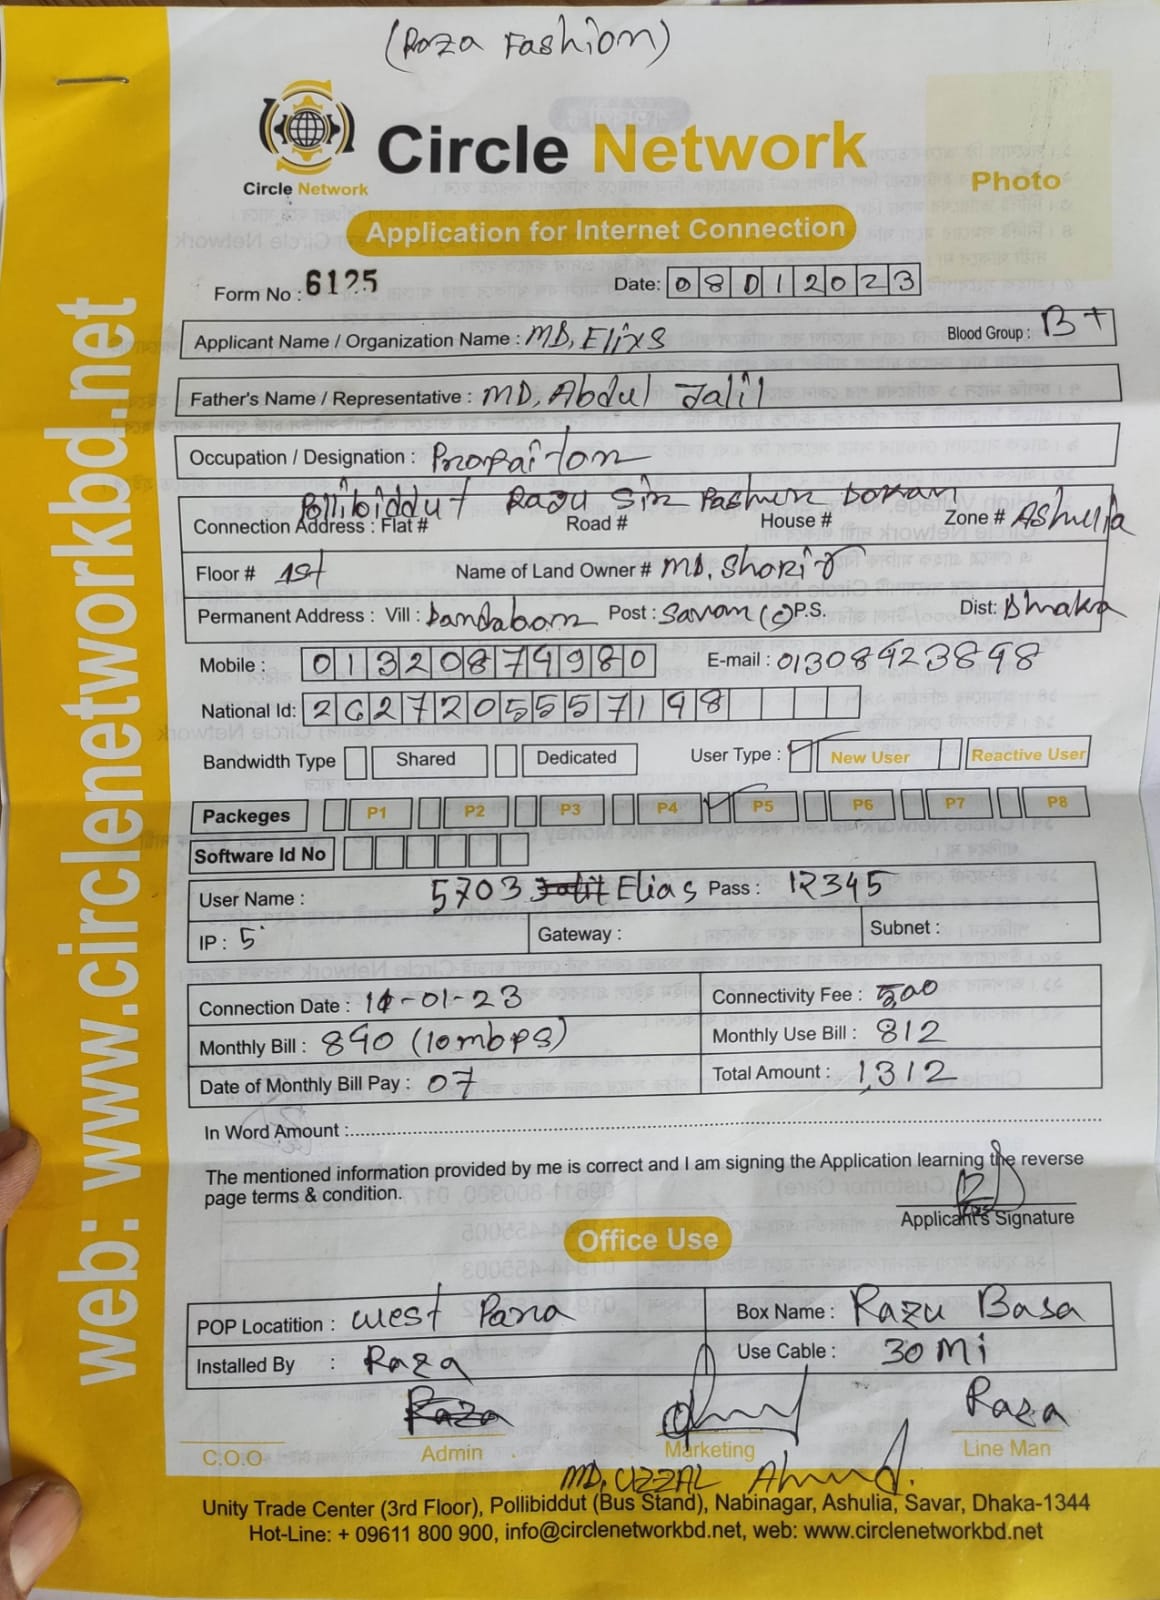 (Raza Fashion)
Circle Network
Circle Network
Photo
Application for Internet Connection
Form No : 6125
Date: 08012023
Applicant Name / Organization Name : MD, Elixs
Blood Group : B+
Father's Name / Representative : MD, Abdul Jalil
Occupation / Designation : Propaiton
Pollibiddut Razu Sir Pasher Dokan
Connection Address : Flat # Road # House # Zone # Ashulia
Floor # 1st Name of Land Owner # MD, Sharif
Permanent Address : Vill : Dandabor Post : Savar (c) P.S. Dist: Dhaka
Mobile : 01320874980 E-mail : 01308923898
National Id: 2627205557198
Bandwidth Type Shared Dedicated User Type : New User Reactive User
Packeges P1 P2 P3 P4 P5 P6 P7 P8
Software Id No
User Name : 5703 Jalil Elias Pass : 12345
IP : 5 Gateway : Subnet :
Connection Date : 11-01-23 Connectivity Fee : 500
Monthly Bill : 840 (10mbps) Monthly Use Bill : 812
Date of Monthly Bill Pay : 07 Total Amount : 1,312
In Word Amount :
The mentioned information provided by me is correct and I am signing the Application learning the reverse
page terms & condition.
Applicant's Signature
Office Use
POP Locatition : West Para Box Name : Razu Basa
Installed By : Raza Use Cable : 30 Mi
Raza Raza
C.O.O Admin Marketing Line Man
MD. UZZAL Ahmed.
Unity Trade Center (3rd Floor), Pollibiddut (Bus Stand), Nabinagar, Ashulia, Savar, Dhaka-1344
Hot-Line: + 09611 800 900, info@circlenetworkbd.net, web: www.circlenetworkbd.net
web: www.circlenetworkbd.net